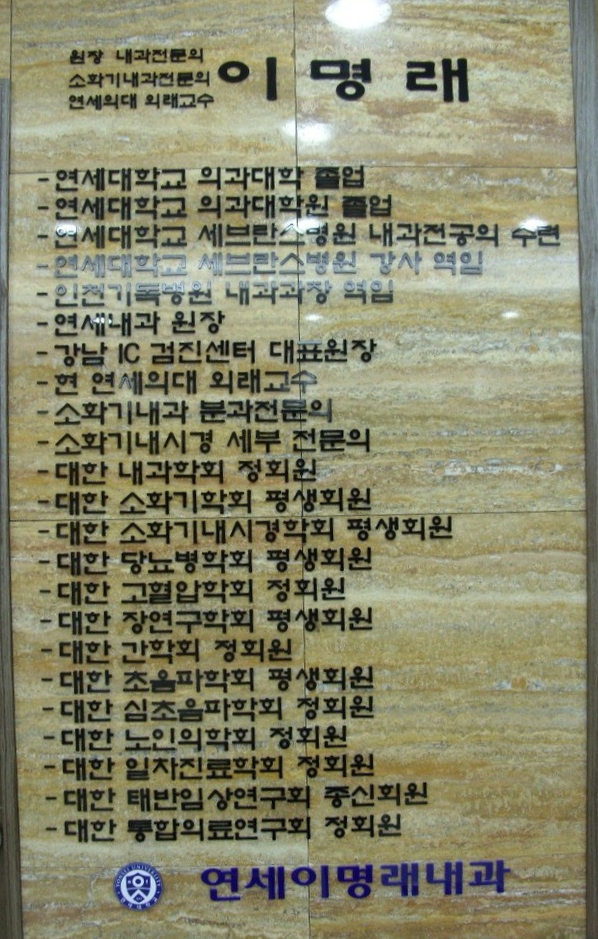 원장 내과전문의
소화기내과전문의
연세의대 외래교수
이명래
-연세대학교 의과대학 졸업
-연세대학교 의과대학원 졸업
-연세대학교 세브란스병원 내과전공의 수련
-연세대학교 세브란스병원 강사 역임
-인천기독병원 내과과장 역임
-연세내과 원장
-강남 IC 검진센터 대표원장
-현 연세의대 외래교수
-소화기내과 분과전문의
-소화기내시경 세부 전문의
-대한 내과학회 정회원
-대한 소화기학회 평생회원
-대한 소화기내시경학회 평생회원
-대한 당뇨병학회 평생회원
-대한 고혈압학회 정회원
-대한 장연구학회 평생회원
-대한 간학회 정회원
-대한 초음파학회 평생회원
-대한 심초음파학회 정회원
-대한 노인의학회 정회원
-대한 일차진료학회 정회원
-대한 태반임상연구회 종신회원
-대한 통합의료연구회 정회원
연세이명래내과